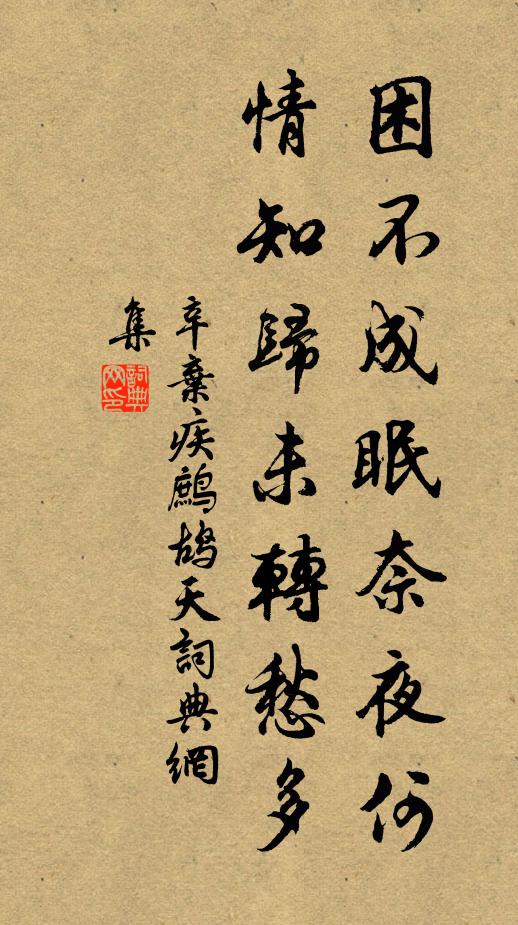 困不成眠奈夜何
情知歸未轉愁多
辛棄疾鷓鴣天詞典網
集
詞典
网印